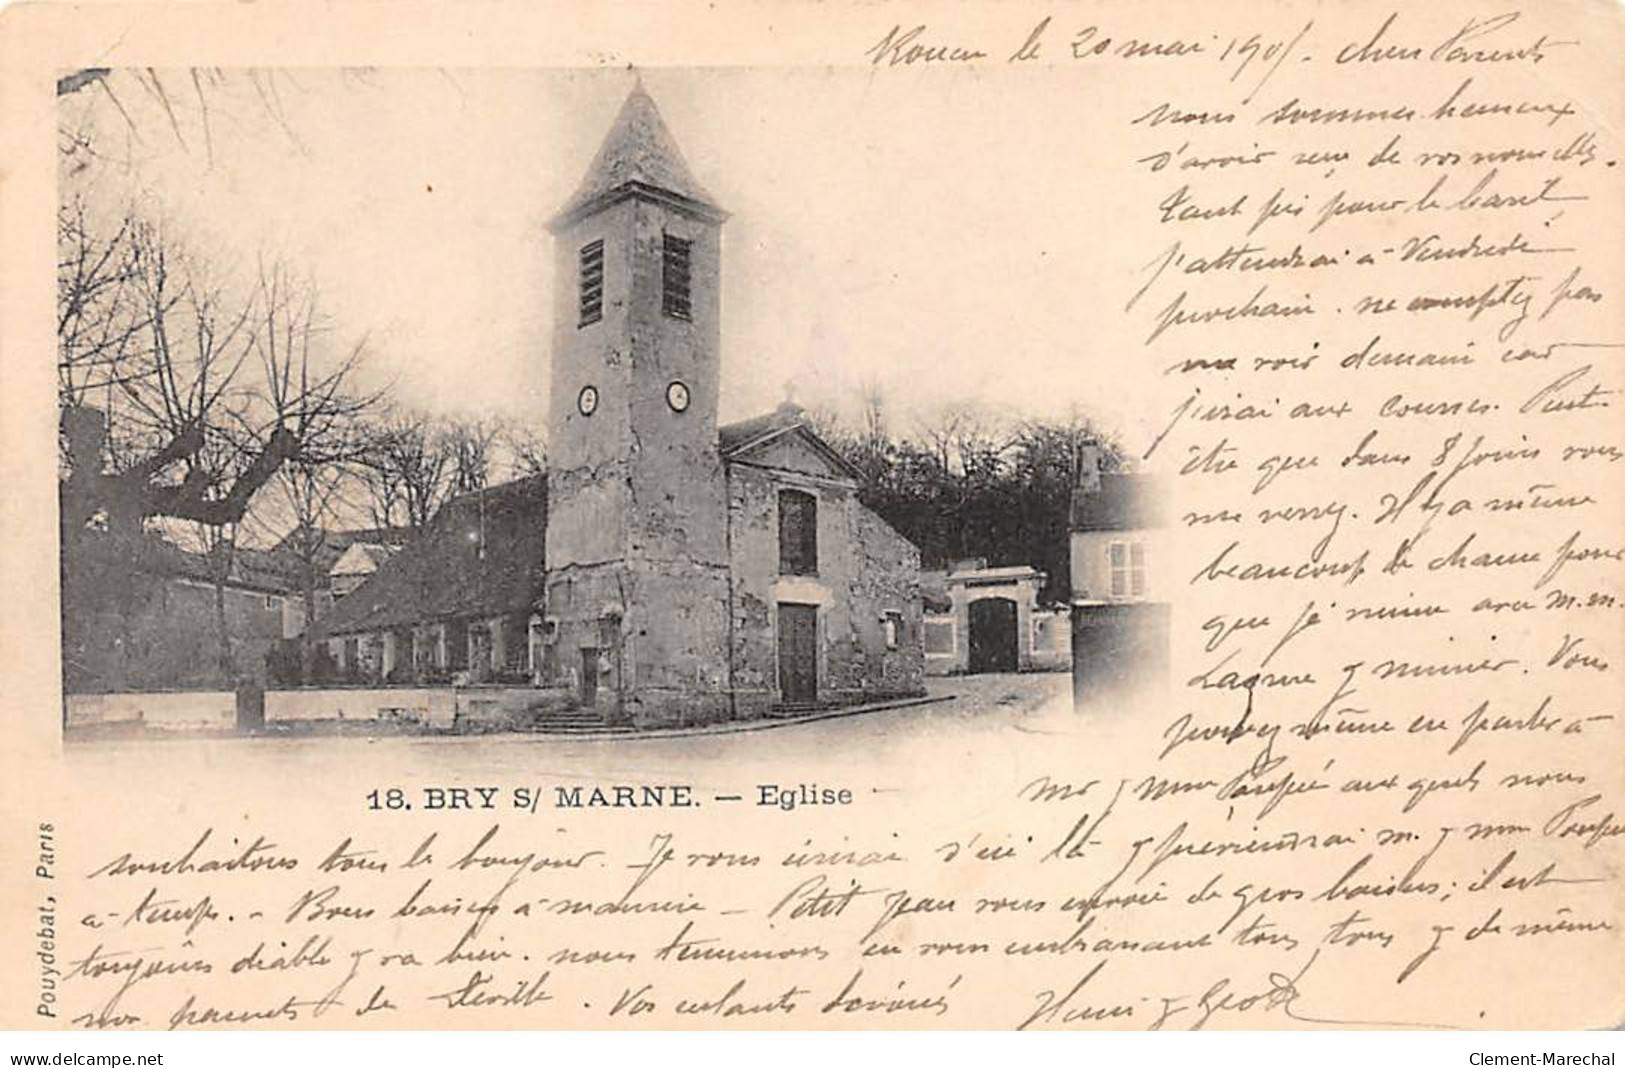 Rouen le 20 mai 190 . chers Parents
nous sommes heureux
d'avoir reçu de vos nouvelles.
tant pis pour le baril
j'attendrai à Vendredi
prochain . ne comptez pas
me voir demain car
j'irai aux courses. Peut-
être que dans 8 jours vous
me verrez. Il y a même
beaucoup de chance pour
que je vienne avec m.m.
Lagrue & minier. Vous
pouvez même en parler à
mr & mme Poupée aux quels nous
souhaitons tous le bonjour. Je vous écrirai d'ici là & préviendrai m. & mme Poupée
à temps. - Bons baisers à mémère - Petit Jean vous envoie de gros baisers; il est
toujours diable & va bien. nous terminons en vous embrassant tous & de même
nos parents de . Vos enfants dévoués Henri &
18. BRY S/ MARNE. — Eglise
Pouydebat, Paris
www.delcampe.net
Clement-Marechal